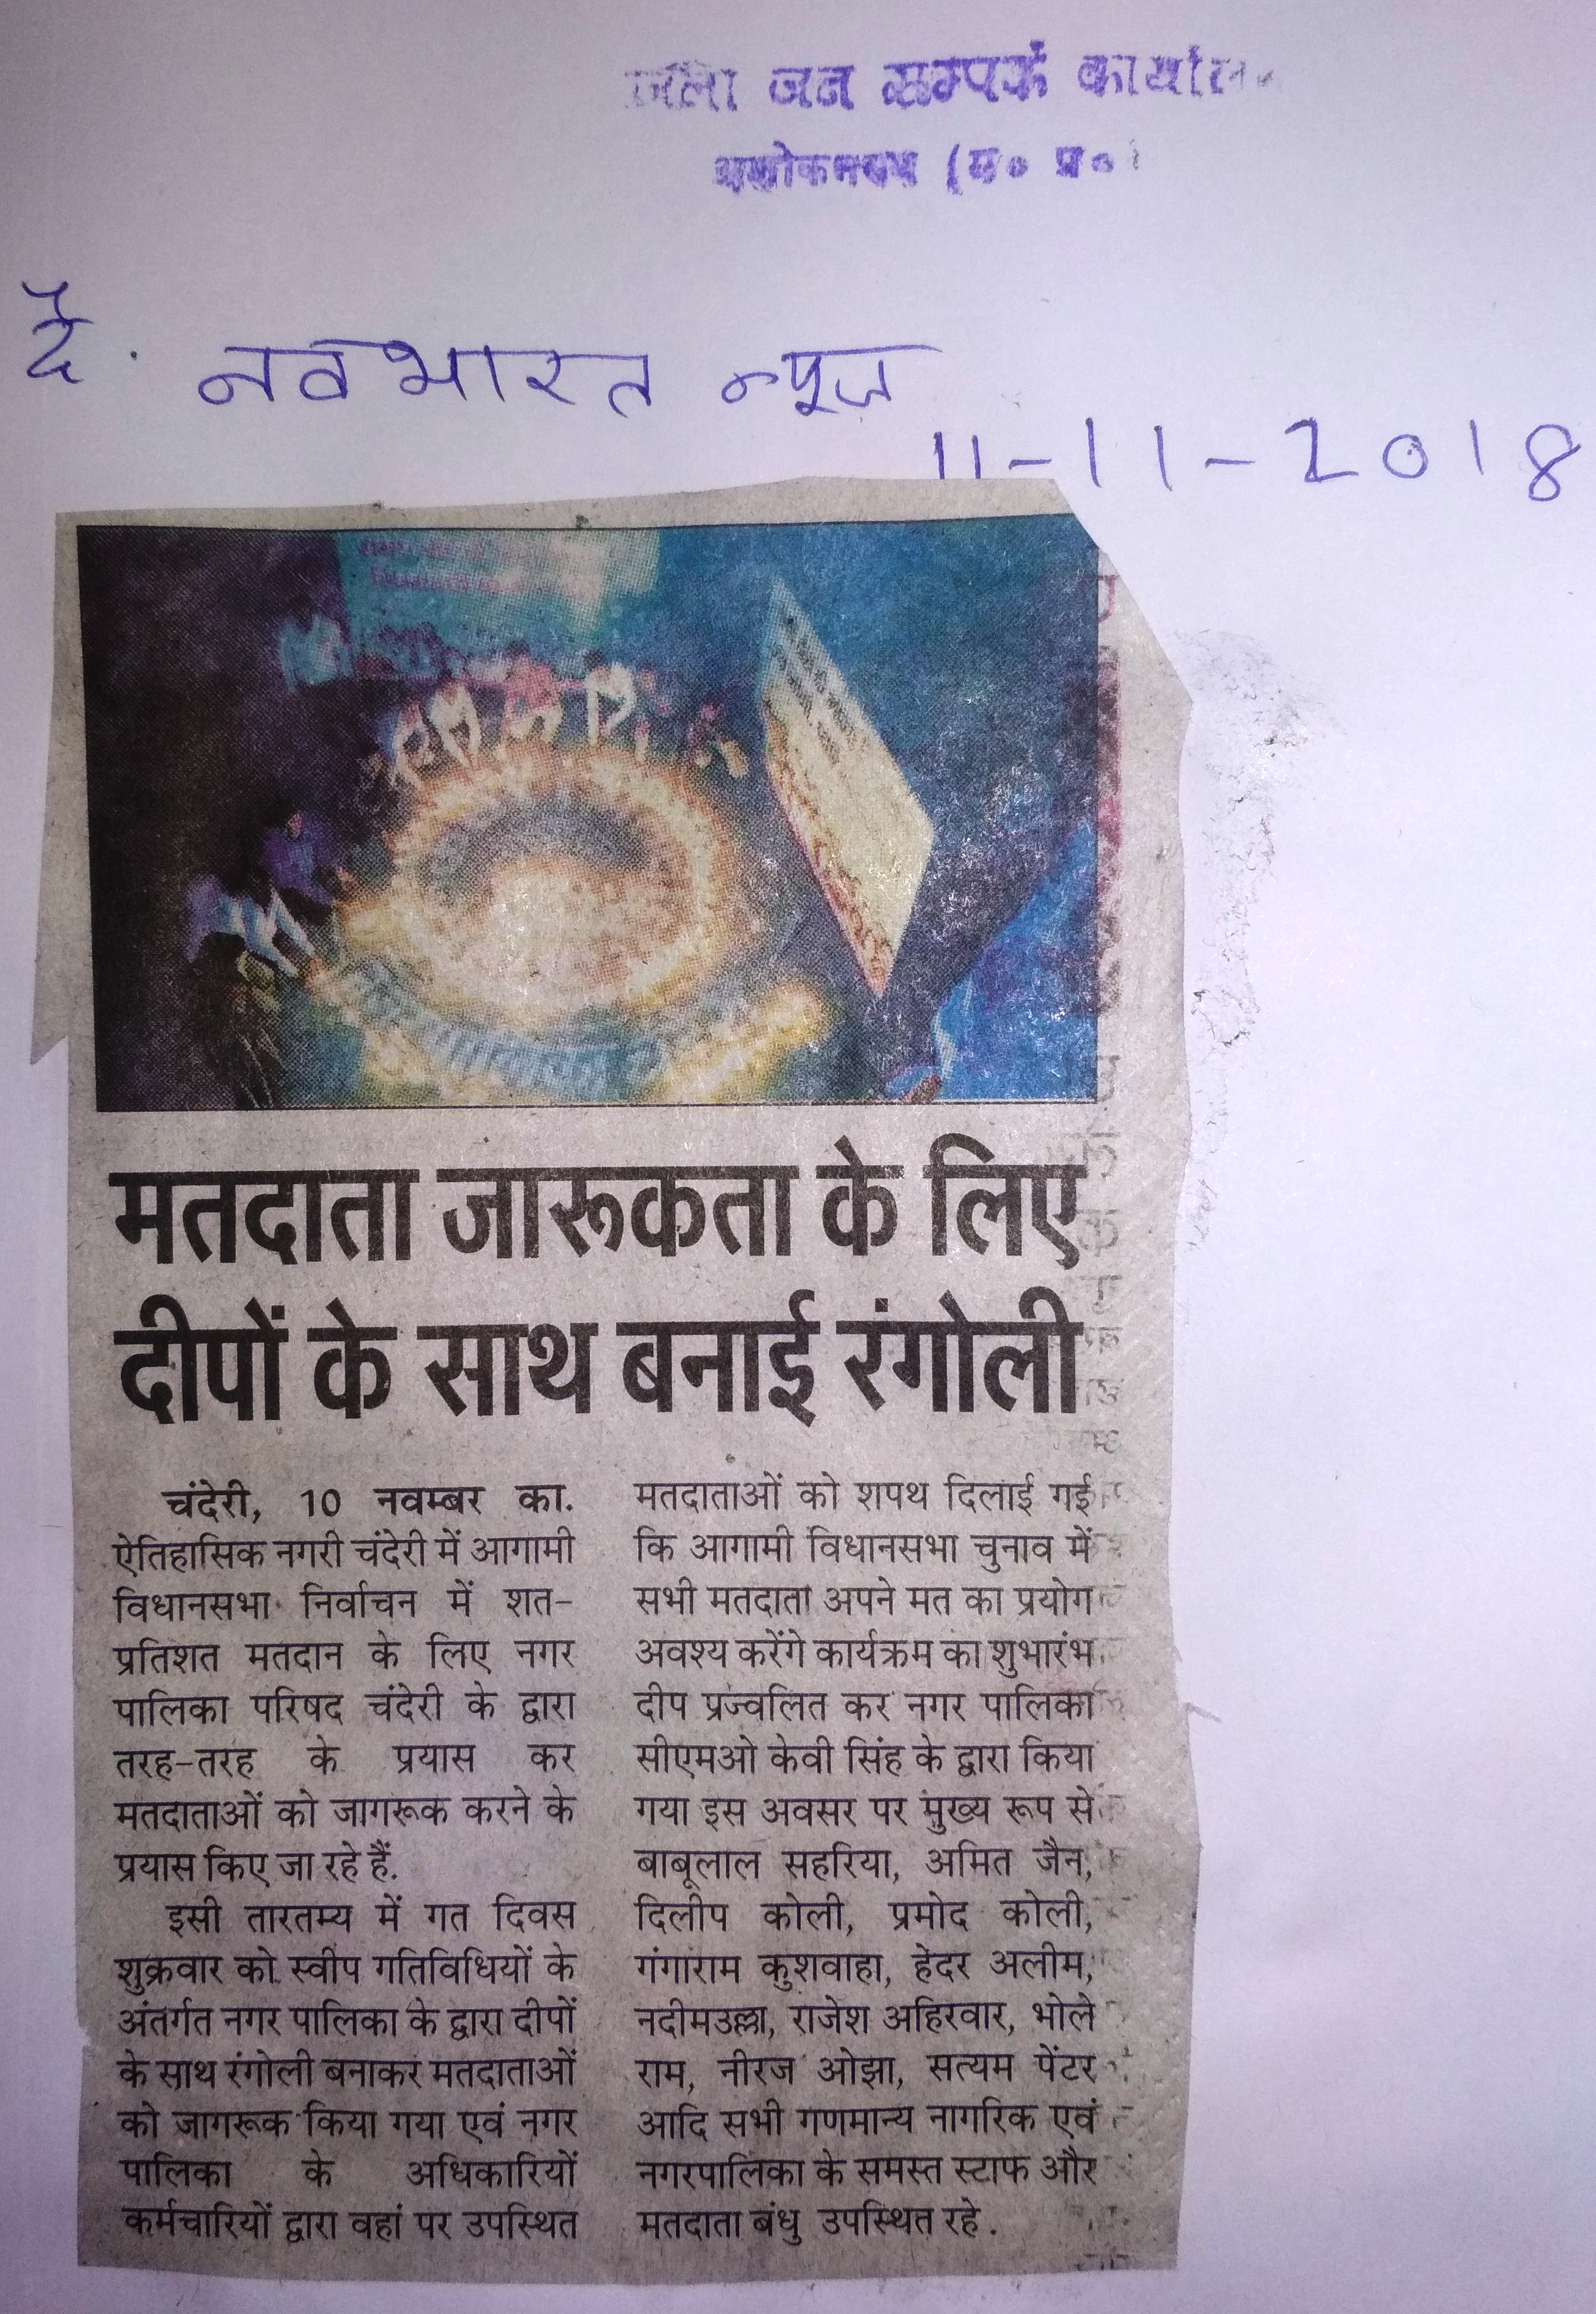 जिला जन सम्पर्क कार्याल
अशोकनगर (म० प्र०)
दै. नवभारत न्यूज
11-11-2018
मतदाता जारूकता के लिए
दीपों के साथ बनाई रंगोली
चंदेरी, 10 नवम्बर का.
ऐतिहासिक नगरी चंदेरी में आगामी
विधानसभा निर्वाचन में शत-
प्रतिशत मतदान के लिए नगर
पालिका परिषद चंदेरी के द्वारा
तरह-तरह के प्रयास कर
मतदाताओं को जागरूक करने के
प्रयास किए जा रहे हैं.
इसी तारतम्य में गत दिवस
शुक्रवार को स्वीप गतिविधियों के
अंतर्गत नगर पालिका के द्वारा दीपों
के साथ रंगोली बनाकर मतदाताओं
को जागरूक किया गया एवं नगर
पालिका के अधिकारियों
कर्मचारियों द्वारा वहां पर उपस्थित
मतदाताओं को शपथ दिलाई गई
कि आगामी विधानसभा चुनाव में
सभी मतदाता अपने मत का प्रयोग
अवश्य करेंगे कार्यक्रम का शुभारंभ
दीप प्रज्वलित कर नगर पालिका
सीएमओ केवी सिंह के द्वारा किया
गया इस अवसर पर मुख्य रूप से
बाबूलाल सहरिया, अमित जैन,
दिलीप कोली, प्रमोद कोली,
गंगाराम कुशवाहा, हेदर अलीम,
नदीमउल्ला, राजेश अहिरवार, भोले
राम, नीरज ओझा, सत्यम पेंटर
आदि सभी गणमान्य नागरिक एवं
नगरपालिका के समस्त स्टाफ और
मतदाता बंधु उपस्थित रहे.